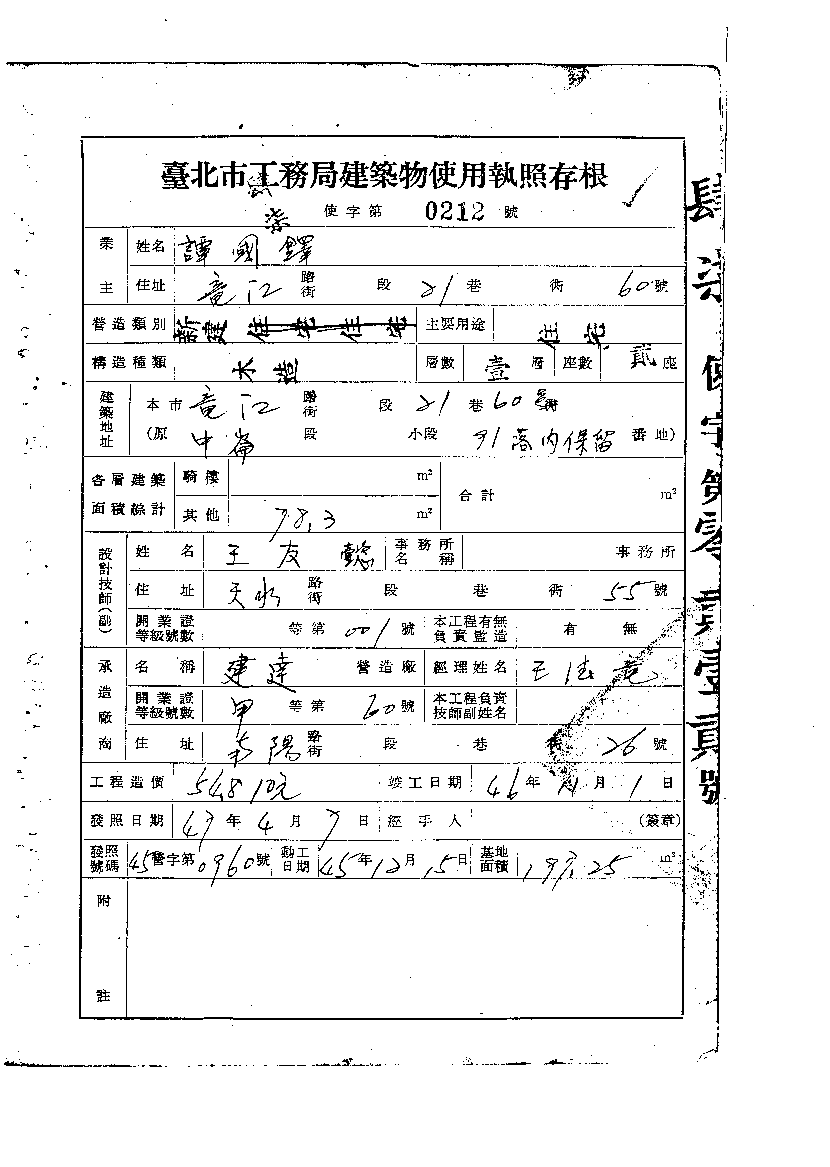 臺北市工務局建築物使用執照存根
肆柒
使字第 0212 號
業主 姓名 譚國鐸
住址 竜江 路街 段 21 巷 衖 60 號
營造類別 新建 住宅 住宅 主要用途 住宅
構造種類 木造 層數 壹 層 座數 貳 座
建築地址 本市 竜江 路街 段 21 巷 60 號 衖
(原 中崙 段 小段 91 番內保留 番地)
各層建築面積總計 騎樓 m² 合計 m²
其他 78.3 m²
設計技師(副) 姓名 王友懿 事務所名稱 事務所
住址 天水 路街 段 巷 衖 55 號
開業證等級號數 等第 001 號 本工程有無負責監造 有 無
承造廠商 名稱 建達 營造廠 經理姓名 王德竜
開業證等級號數 甲 等第 60 號 本工程負責技師副姓名
住址 南陽 路街 段 巷 衖 26 號
工程造價 54,810元 竣工日期 46 年 11 月 1 日
發照日期 47 年 4 月 7 日 經手人 (簽章)
發照號碼 45 營字第 0960 號 動工日期 45 年 12 月 15 日 基地面積 197.25 m²
附註
肆柒使字第零貳壹貳號